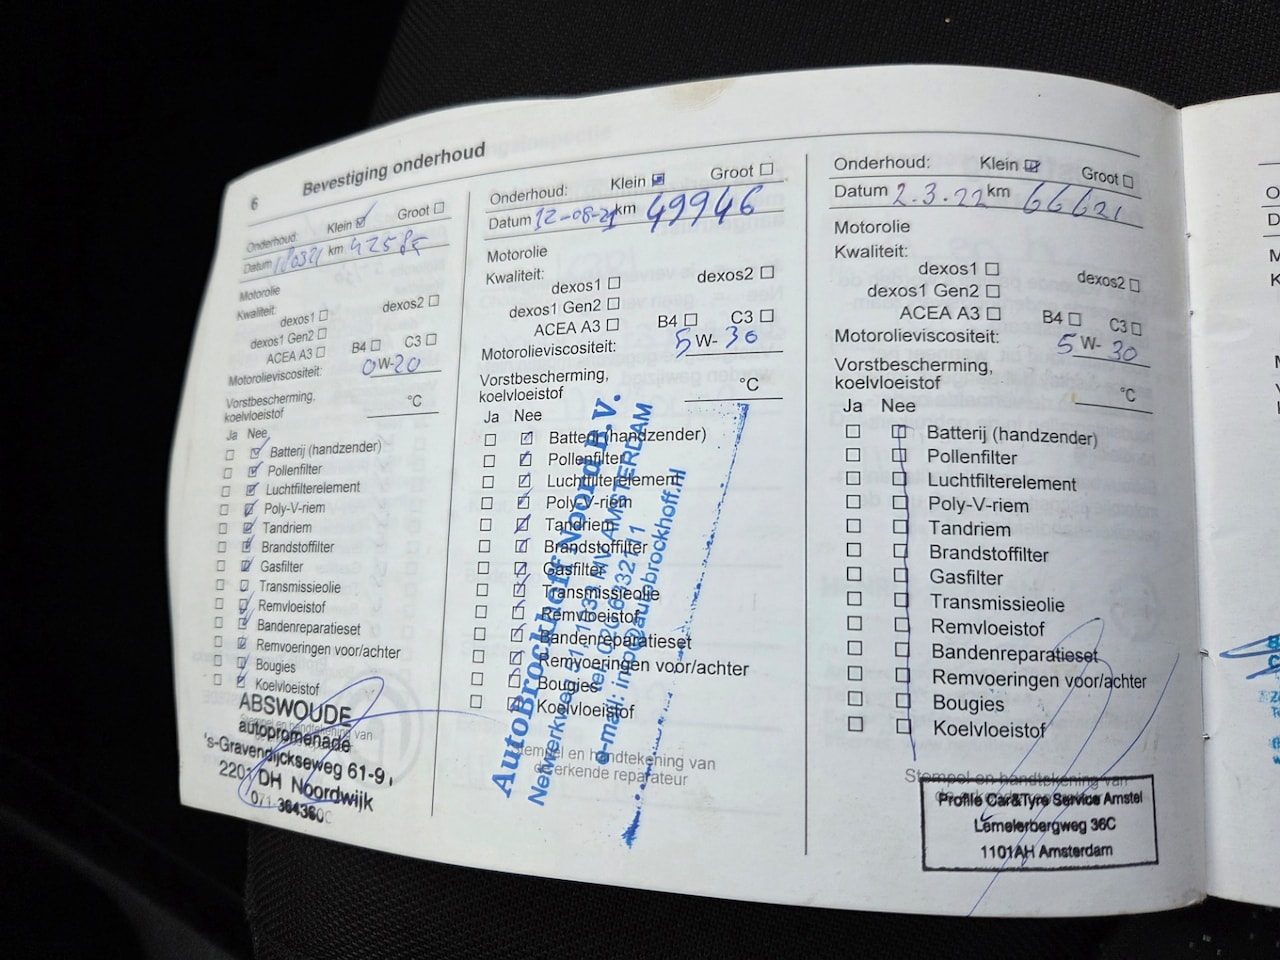 6 Bevestiging onderhoud
Onderhoud: Klein Groot
Datum 180321 km 42585
Motorolie
Kwaliteit:
dexos1 dexos2
dexos1 Gen2
ACEA A3 B4 C3
Motorolieviscositeit: 0W-20
Vorstbescherming,
koelvloeistof °C
Ja Nee
Batterij (handzender)
Pollenfilter
Luchtfilterelement
Poly-V-riem
Tandriem
Brandstoffilter
Gasfilter
Transmissieolie
Remvloeistof
Bandenreparatieset
Remvoeringen voor/achter
Bougies
Koelvloeistof
ABSWOUDE
autopromenade
's-Gravendijckseweg 61-9
2201 DH Noordwijk
Onderhoud: Klein Groot
Datum 12-08-21 km 49946
Motorolie
Kwaliteit:
dexos1 dexos2
dexos1 Gen2
ACEA A3 B4 C3
Motorolieviscositeit: 5W-30
Vorstbescherming,
koelvloeistof °C
Ja Nee
Batterij (handzender)
Pollenfilter
Luchtfilterelement
Poly-V-riem
Tandriem
Brandstoffilter
Gasfilter
Transmissieolie
Remvloeistof
Bandenreparatieset
Remvoeringen voor/achter
Bougies
Koelvloeistof
Stempel en handtekening van
de werkende reparateur
AutoBrockhoff Noord B.V.
Netwerkweg AMSTERDAM
e-mail: info@autobrockhoff.nl
Onderhoud: Klein Groot
Datum 2.3.22 km 66621
Motorolie
Kwaliteit:
dexos1 dexos2
dexos1 Gen2
ACEA A3 B4 C3
Motorolieviscositeit: 5W-30
Vorstbescherming,
koelvloeistof °C
Ja Nee
Batterij (handzender)
Pollenfilter
Luchtfilterelement
Poly-V-riem
Tandriem
Brandstoffilter
Gasfilter
Transmissieolie
Remvloeistof
Bandenreparatieset
Remvoeringen voor/achter
Bougies
Koelvloeistof
Stempel en handtekening van
Profile Car&Tyre Service Amstel
Lemelerbergweg 36C
1101AH Amsterdam